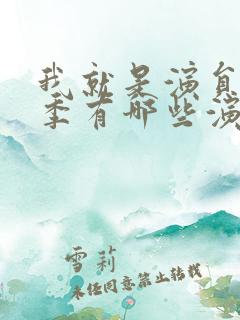 我就是演员
季有哪些演
雪莉
未经同意禁止转载